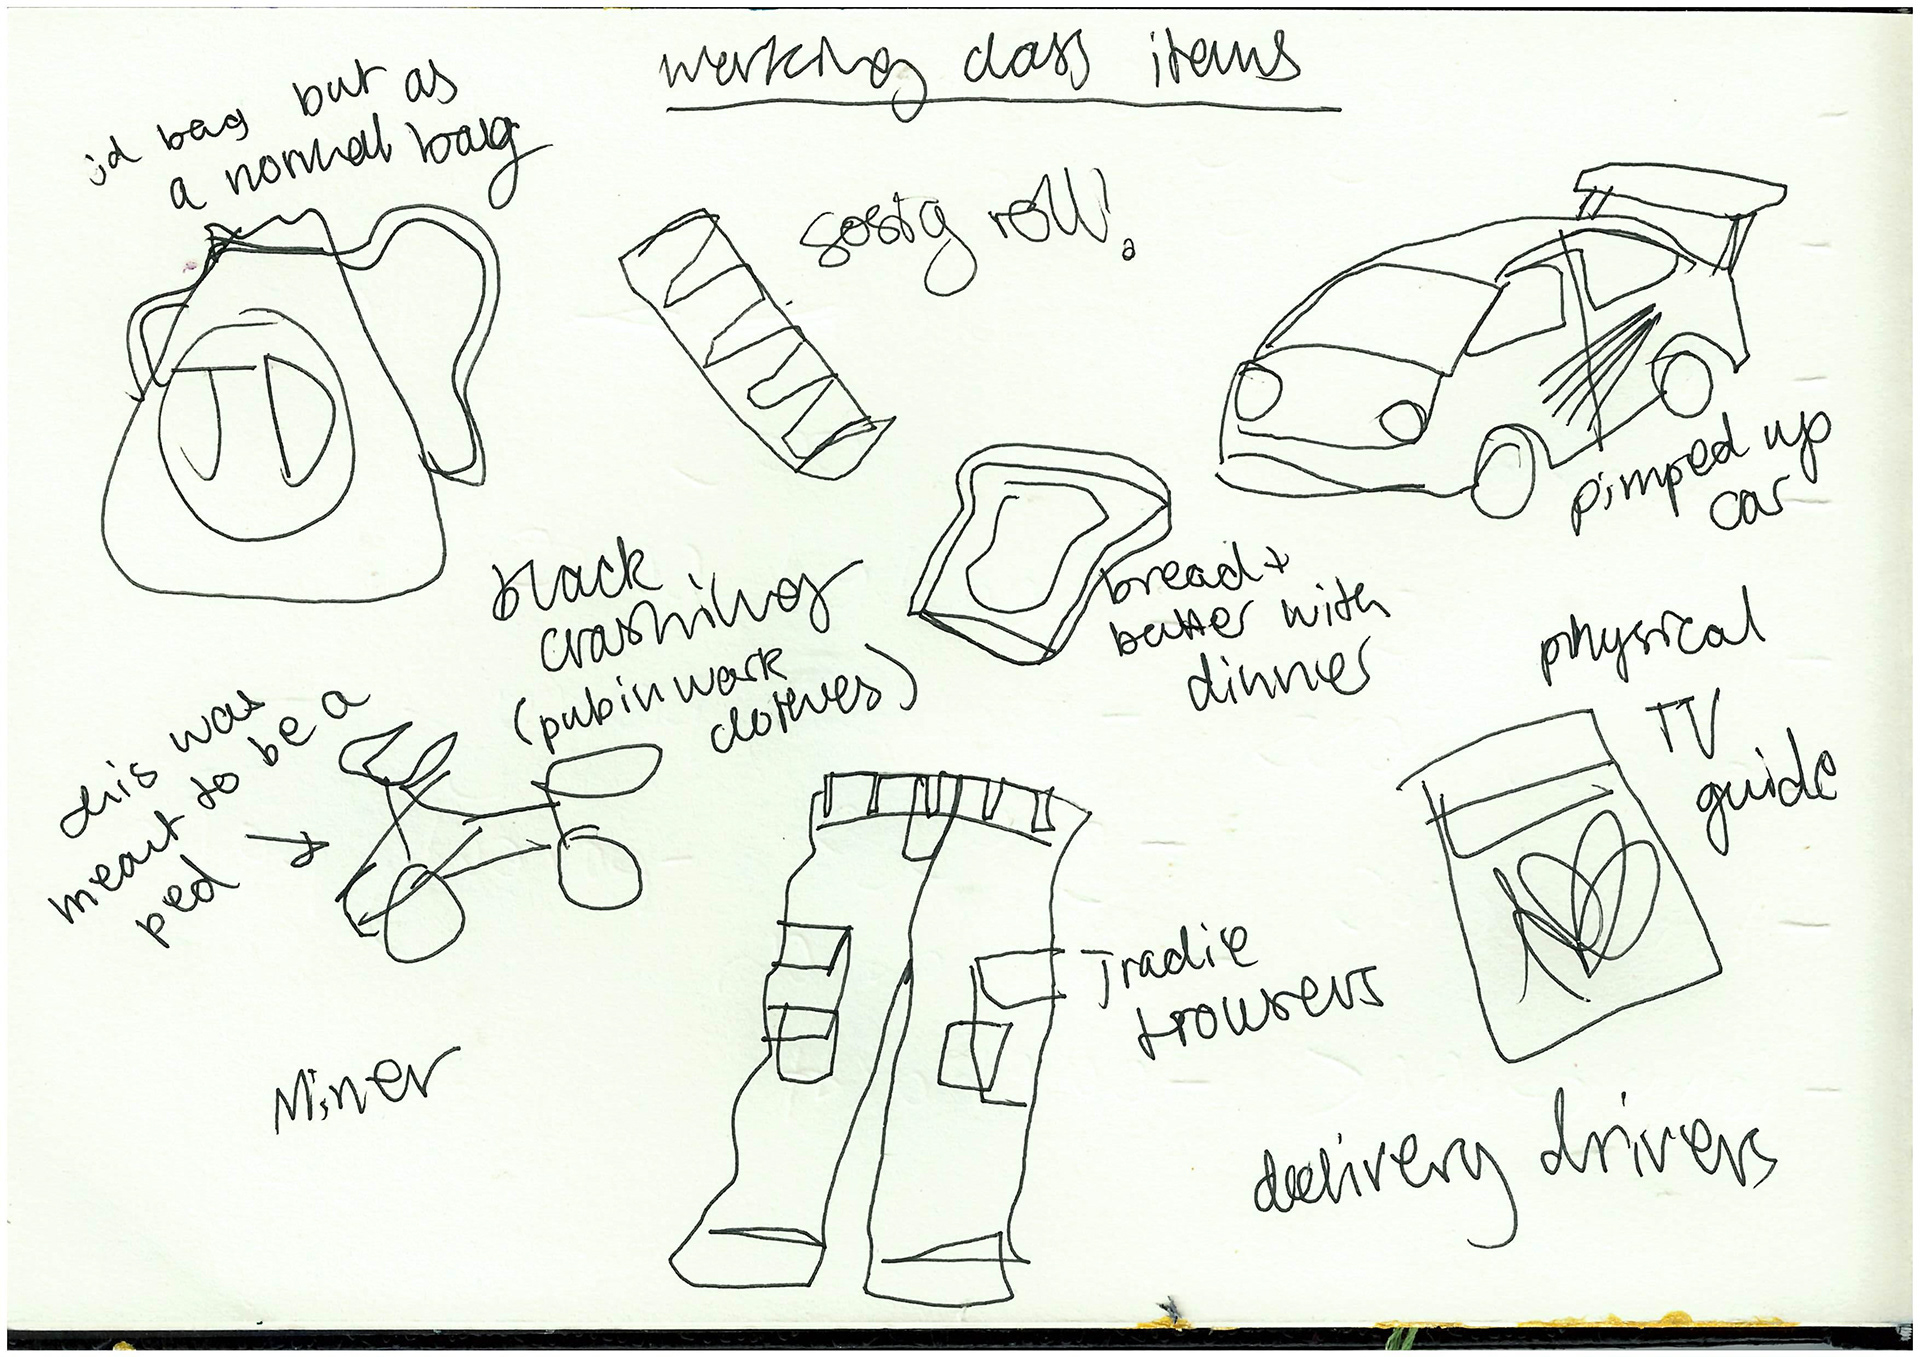 working class items
jd bag but as
a normal bag
JD
sosig roll!
pimped up
car
black
crashing
(pub in work
clothes)
bread +
butter with
dinner
physical
TV
guide
this was
meant to be a
ped
Tradie
trousers
Miner
delivery drivers